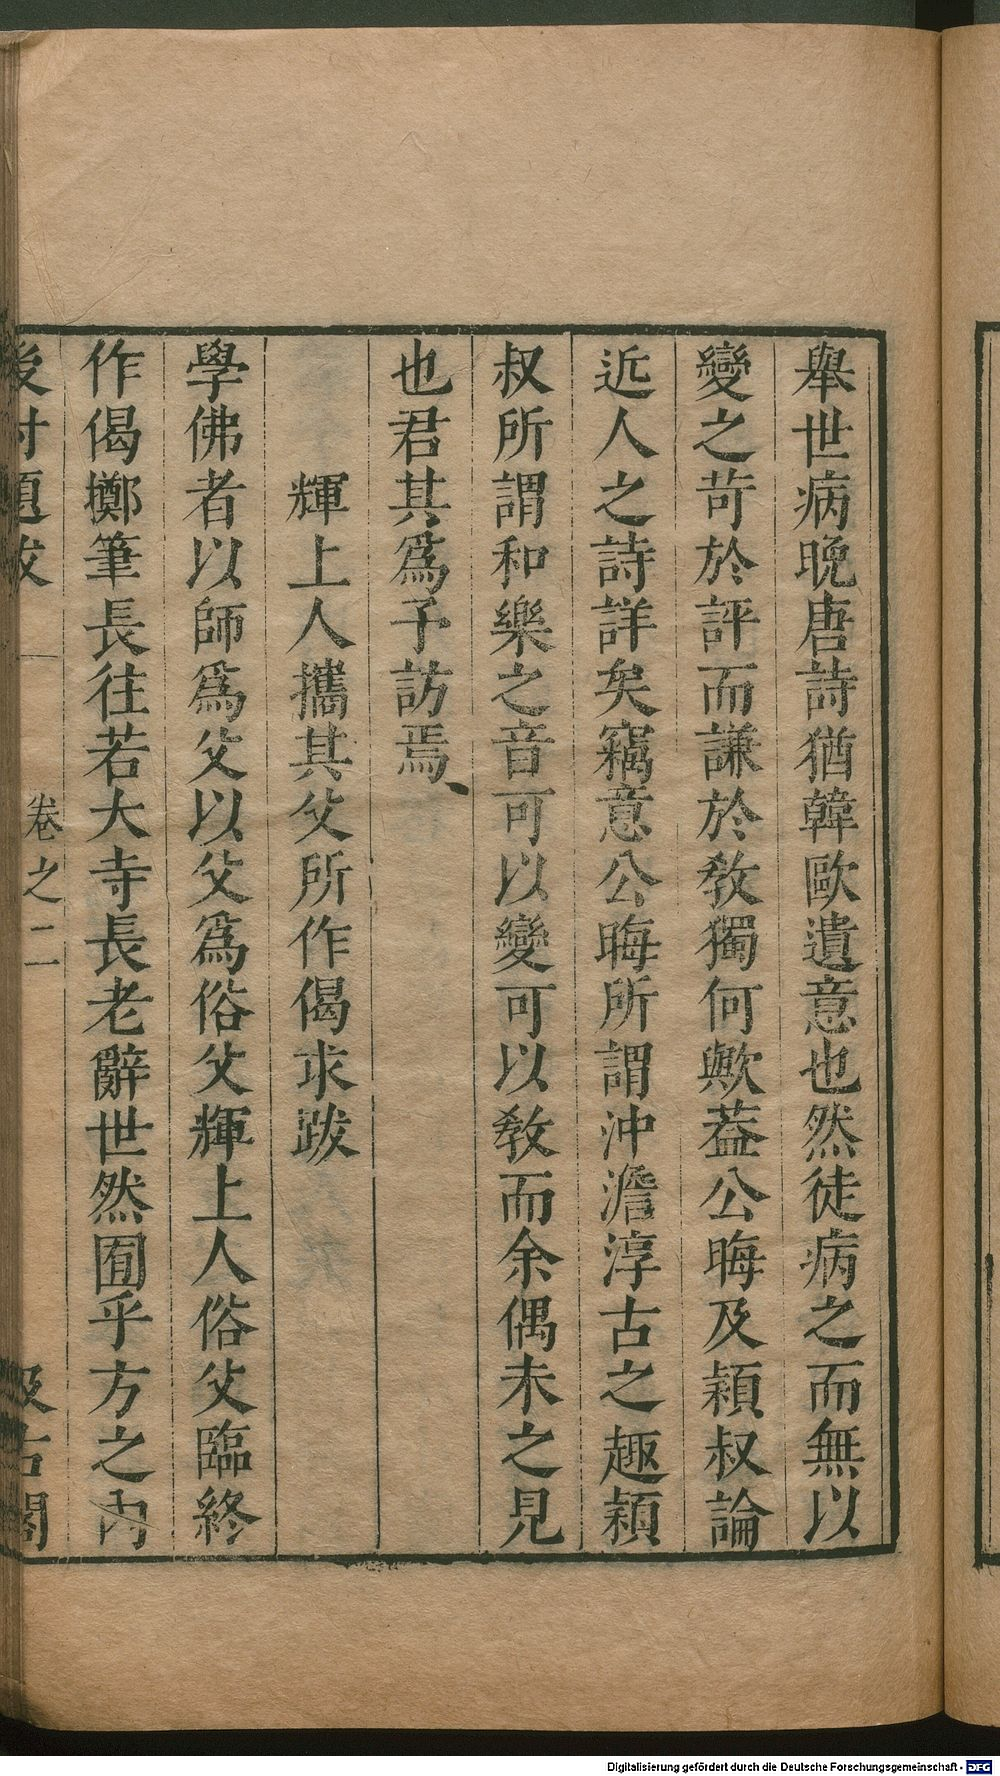 舉世病晚唐詩猶韓歐遺意也然徒病之而無以
變之苛於評而謙於敎獨何歟葢公晦及穎叔論
近人之詩詳矣竊意公晦所謂沖澹淳古之趣穎
叔所謂和樂之音可以變可以敎而余偶未之見
也君其爲予訪焉、
輝上人攜其父所作偈求跋
學佛者以師爲父以父爲俗父輝上人俗父臨終
作偈擲筆長往若大寺長老辭世然囿乎方之內
後村題跋 卷之二 汲古閣
Digitalisierung gefördert durch die Deutsche Forschungsgemeinschaft - DFG